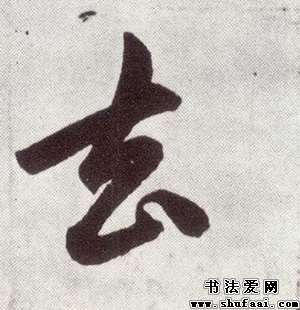 去
书法爱网
www.shufaai.com